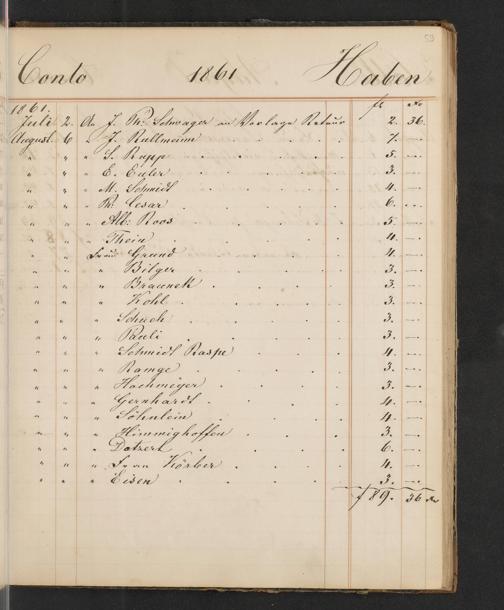 59
Conto 1861 Haben
1861. fr xr
Juli 2. An J. Ph. Schwager an Vorlage Retour 2. 36.
August 6 " J. Rullmann 7. —
" " " S. Rupp 5. —
" " " E. Euler 3. —
" " " M. Schmidt 4. —
" " " Ph. Cesar 6. —
" " " Alb: Roos 5. —
" " " Thein 4. —
" " " Frau Grund 4. —
" " " Bilger 3. —
" " " Braunek 3. —
" " " Kohl 3. —
" " " Schuck 3. —
" " " Pauli 3. —
" " " Schmidt Raspe 4. —
" " " Ramge 3. —
" " " Hochmeyer 3. —
" " " Gernhardt 4. —
" " " Söhnlein 4. —
" " " Himmighoffen 3. —
" " " Dotzert 6. —
" " " Frau Körber 4. —
" " " Eisen 3. —
f 89. 36 xr